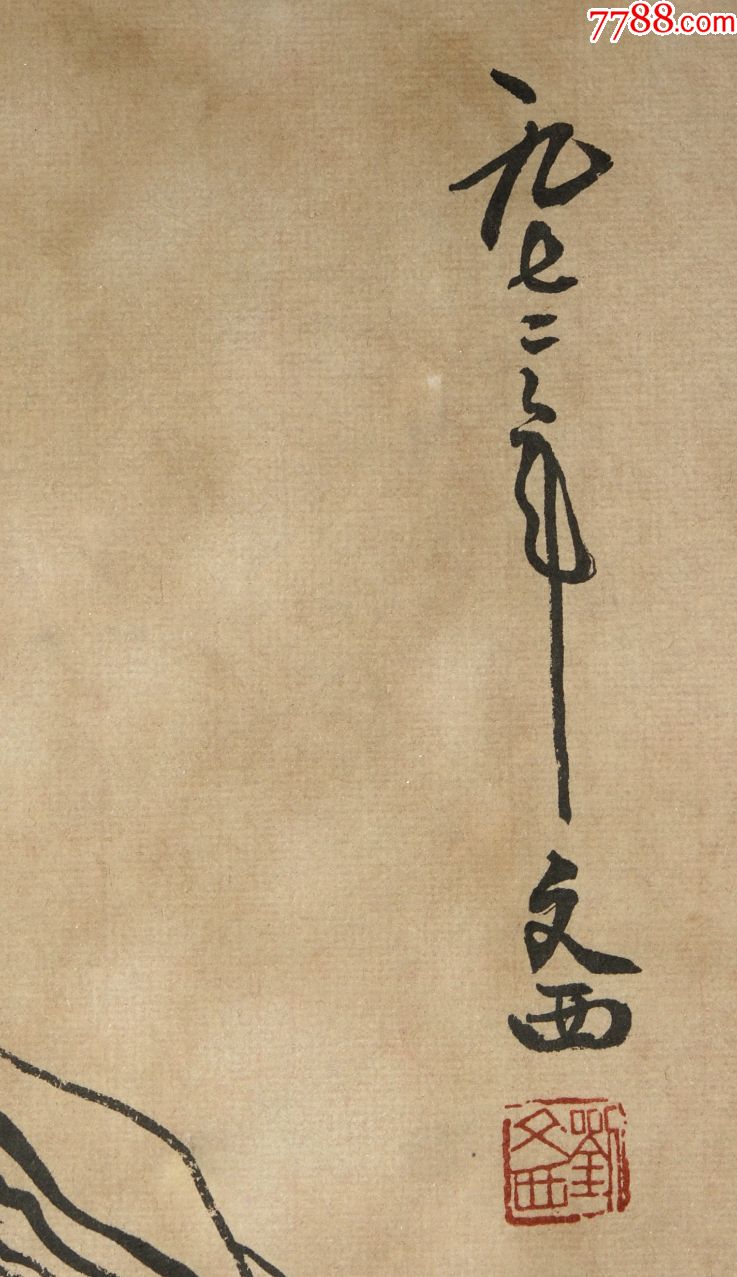 7788.com
一九七二年 文西
劉文西